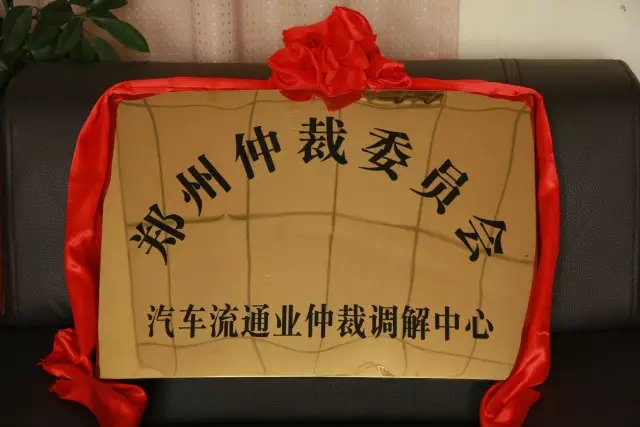 郑州仲裁委员会
汽车流通业仲裁调解中心